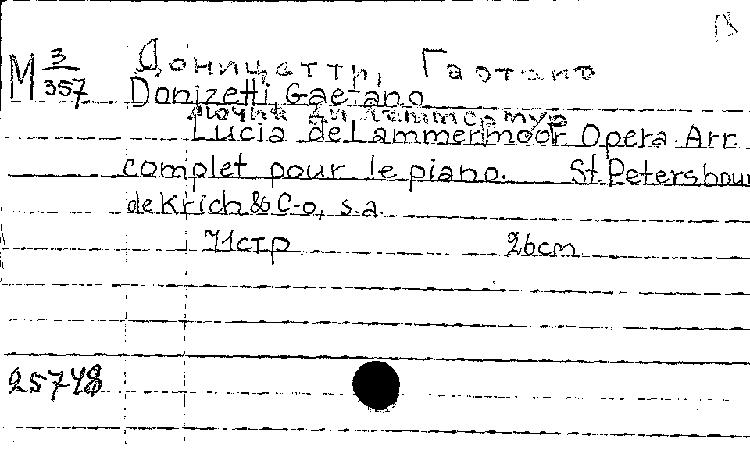 М 3/357 Доницетти, Гаэтано
Donizetti, Gaetano
Лючия ди Ламмермур
Lucia de Lammermoor Opera Arr.
complet pour le piano. St. Petersbour
de Krich & C-o, s.a.
71стр 26cm
25748